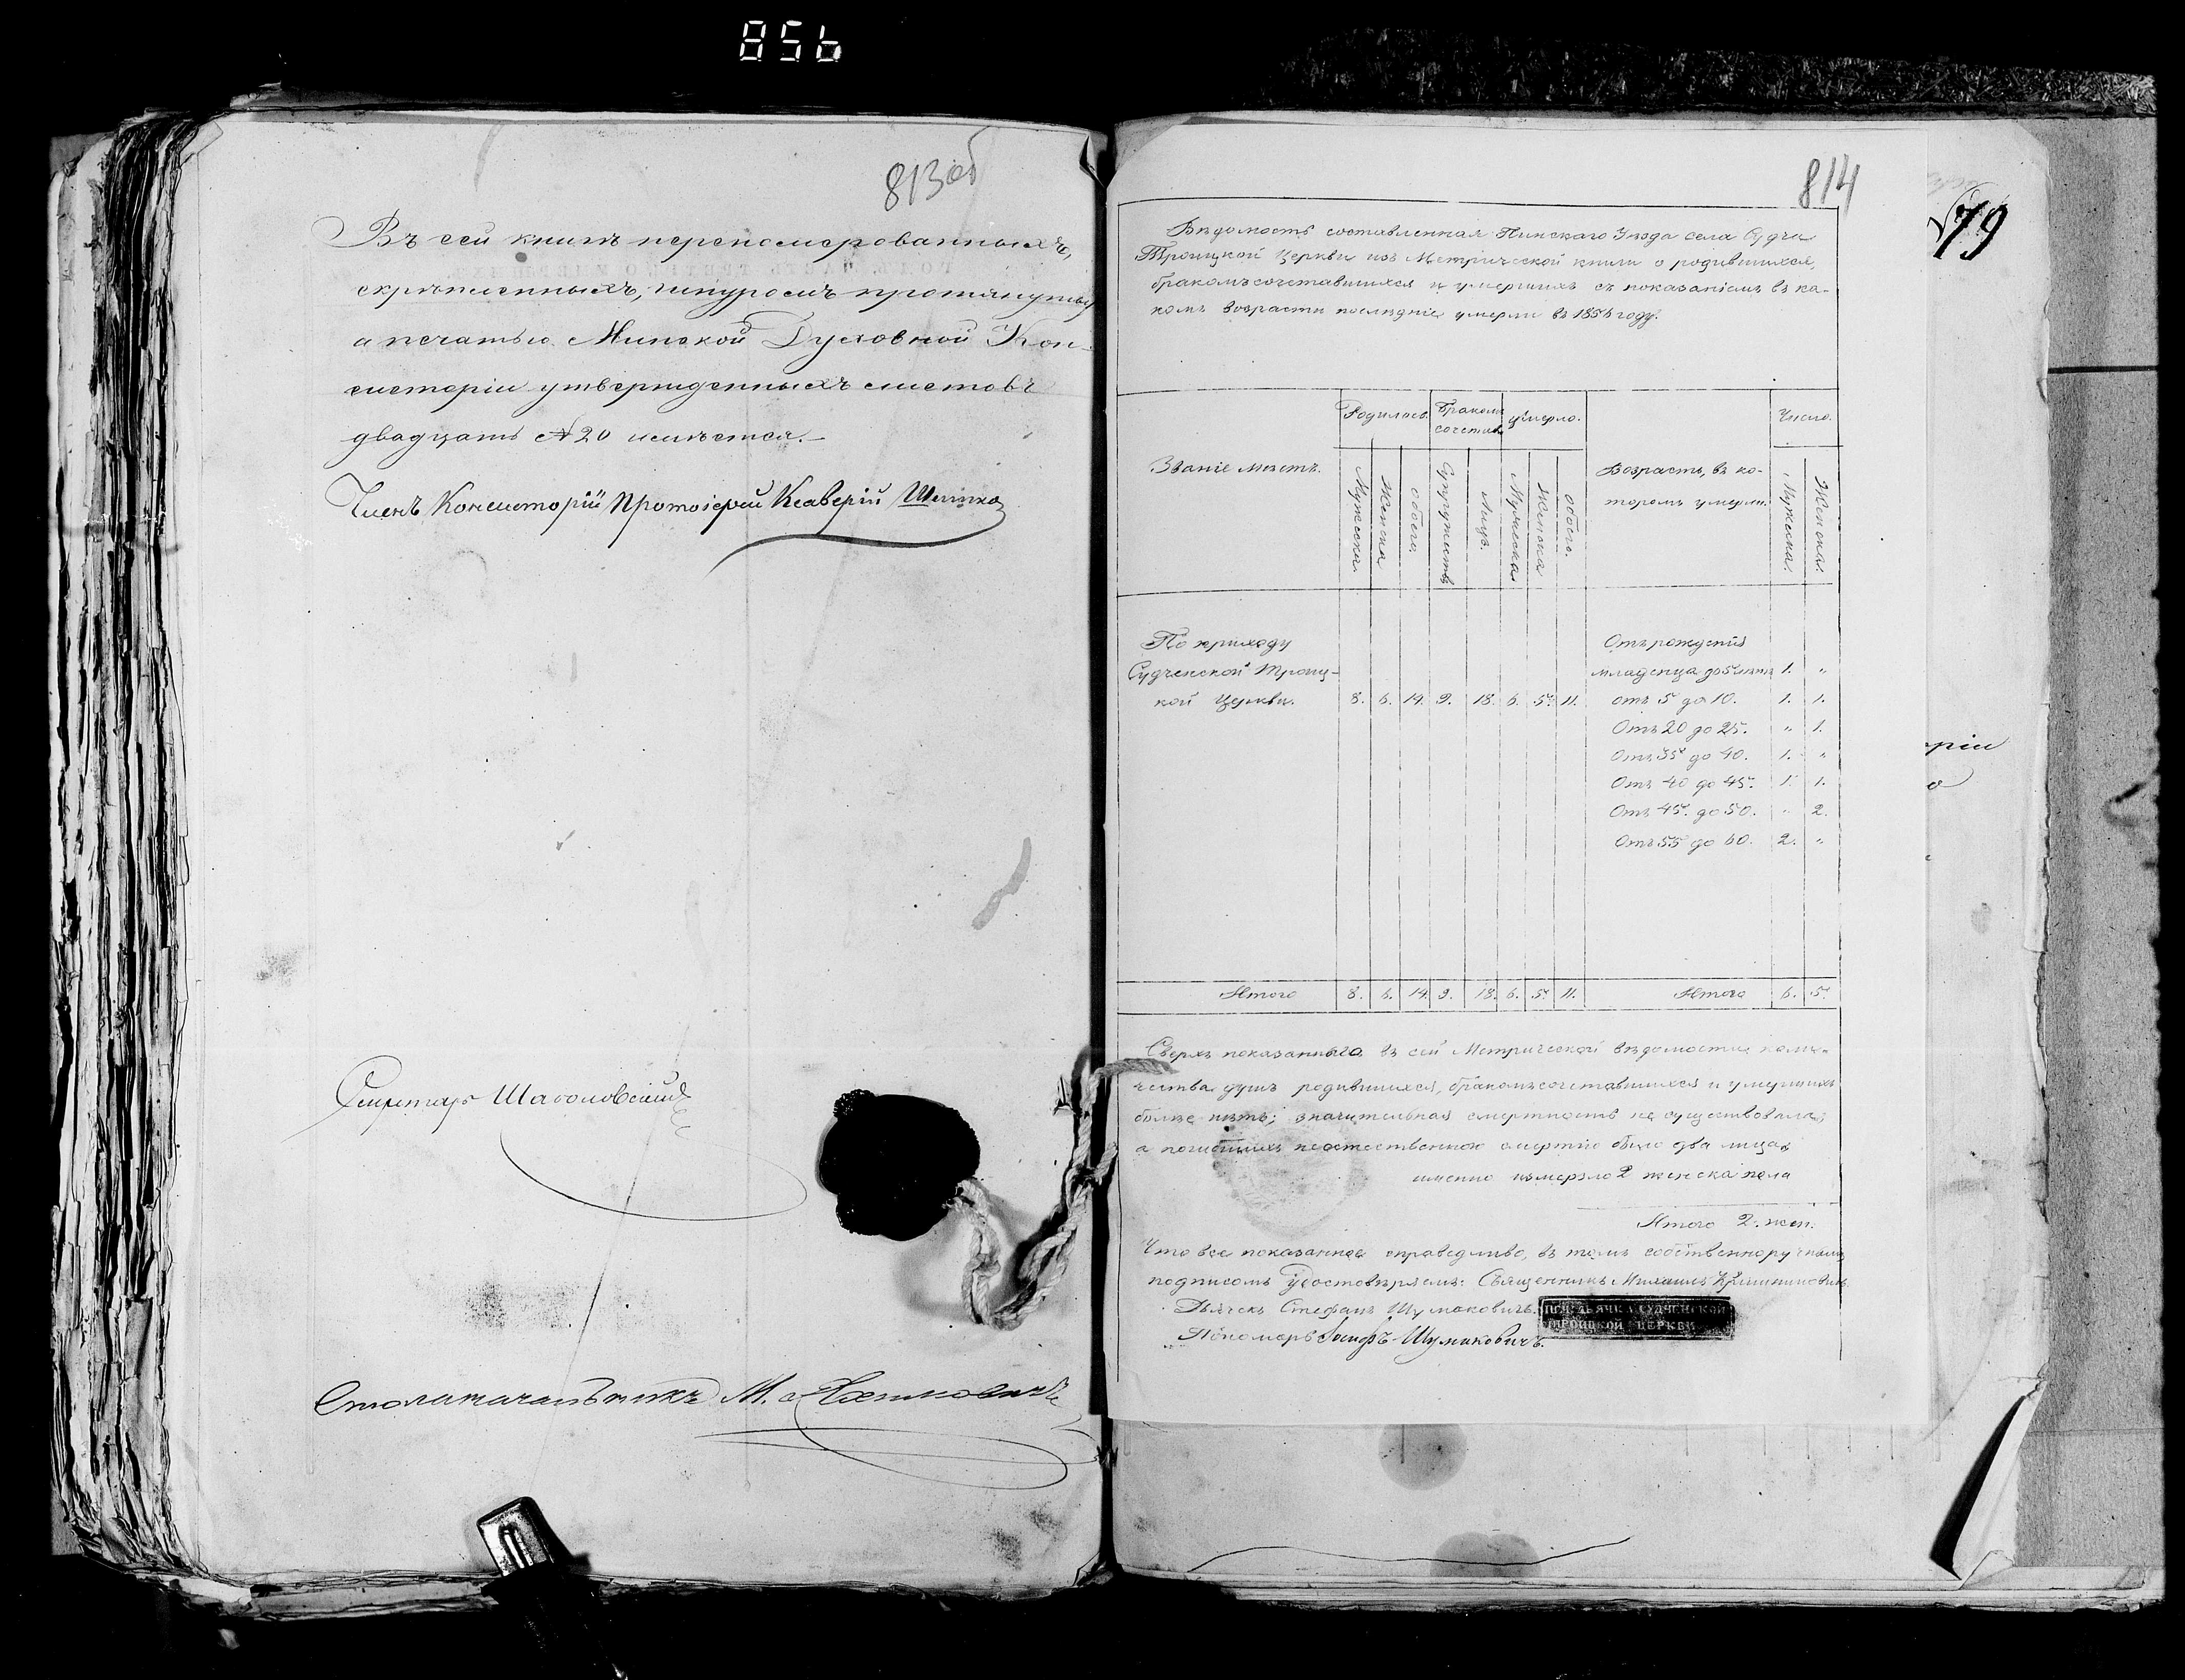 856
813 об
Въ сей книгѣ перономерованныхъ,
скрѣпленныхъ, шнуромъ протянутыхъ
а печатью Минской Духовной Кон-
систоріи утвержденныхъ листовъ
двадцать № 20 имѣется.
Членъ Консисторіи Протоіерей Ксаверій
Секретарь
Столоначальникъ М.
814
79
Вѣдомость составленная Пинскаго Уѣзда села Судча
Троицкой Церкви изъ Метрической книги о родившихся,
бракомъ сочетавшихся и умершихъ съ показаніемъ въ ка-
комъ возрастѣ послѣдніе умерли въ 1856 году.
Званіе мѣстъ.
Родилось.
Бракомъ сочетав.
Умерло.
Возрастъ, въ ко-
торомъ умерли.
Число.
Мужеска.
Женска
обоего.
Супружествъ
Лицъ.
Мужеска
Женска
обоего.
Мужеска.
Женска.
По приходу
Судченской Троиц-
кой Церкви. 8. 6. 14. 9. 18. 6. 5. 11.
Отъ рожденія
младенца до 5 лѣтъ 1. "
отъ 5 до 10. 1. 1.
Отъ 20 до 25. " 1.
Отъ 35 до 40. 1. "
Отъ 40 до 45. 1. 1.
Отъ 45. до 50. " 2.
Отъ 55 до 60. 2. "
Итого 8. 6. 14. 9. 18. 6. 5. 11. Итого 6. 5.
Сверхъ показаннаго въ сей Метрической вѣдомости коли-
чества душъ родившихся, бракомъ сочетавшихся и умершихъ
болѣе нѣтъ; значительная смертность не существовала,
а погибшихъ неестественною смертію было два лица
именно замерзло 2 женска пола
Итого 2. жен.
Что все показанное справедливо, въ томъ собственноручнымъ
подписомъ удостовѣряемъ: Священникъ Михаилъ
Дьячекъ Стефанъ Шумаковичъ.
ПЕЧ: ДЬЯЧКА СУДЧЕНСКОЙ
ТРОИЦКОЙ ЦЕРКВИ
Пономарь Іосифъ Шумаковичъ.
ріи